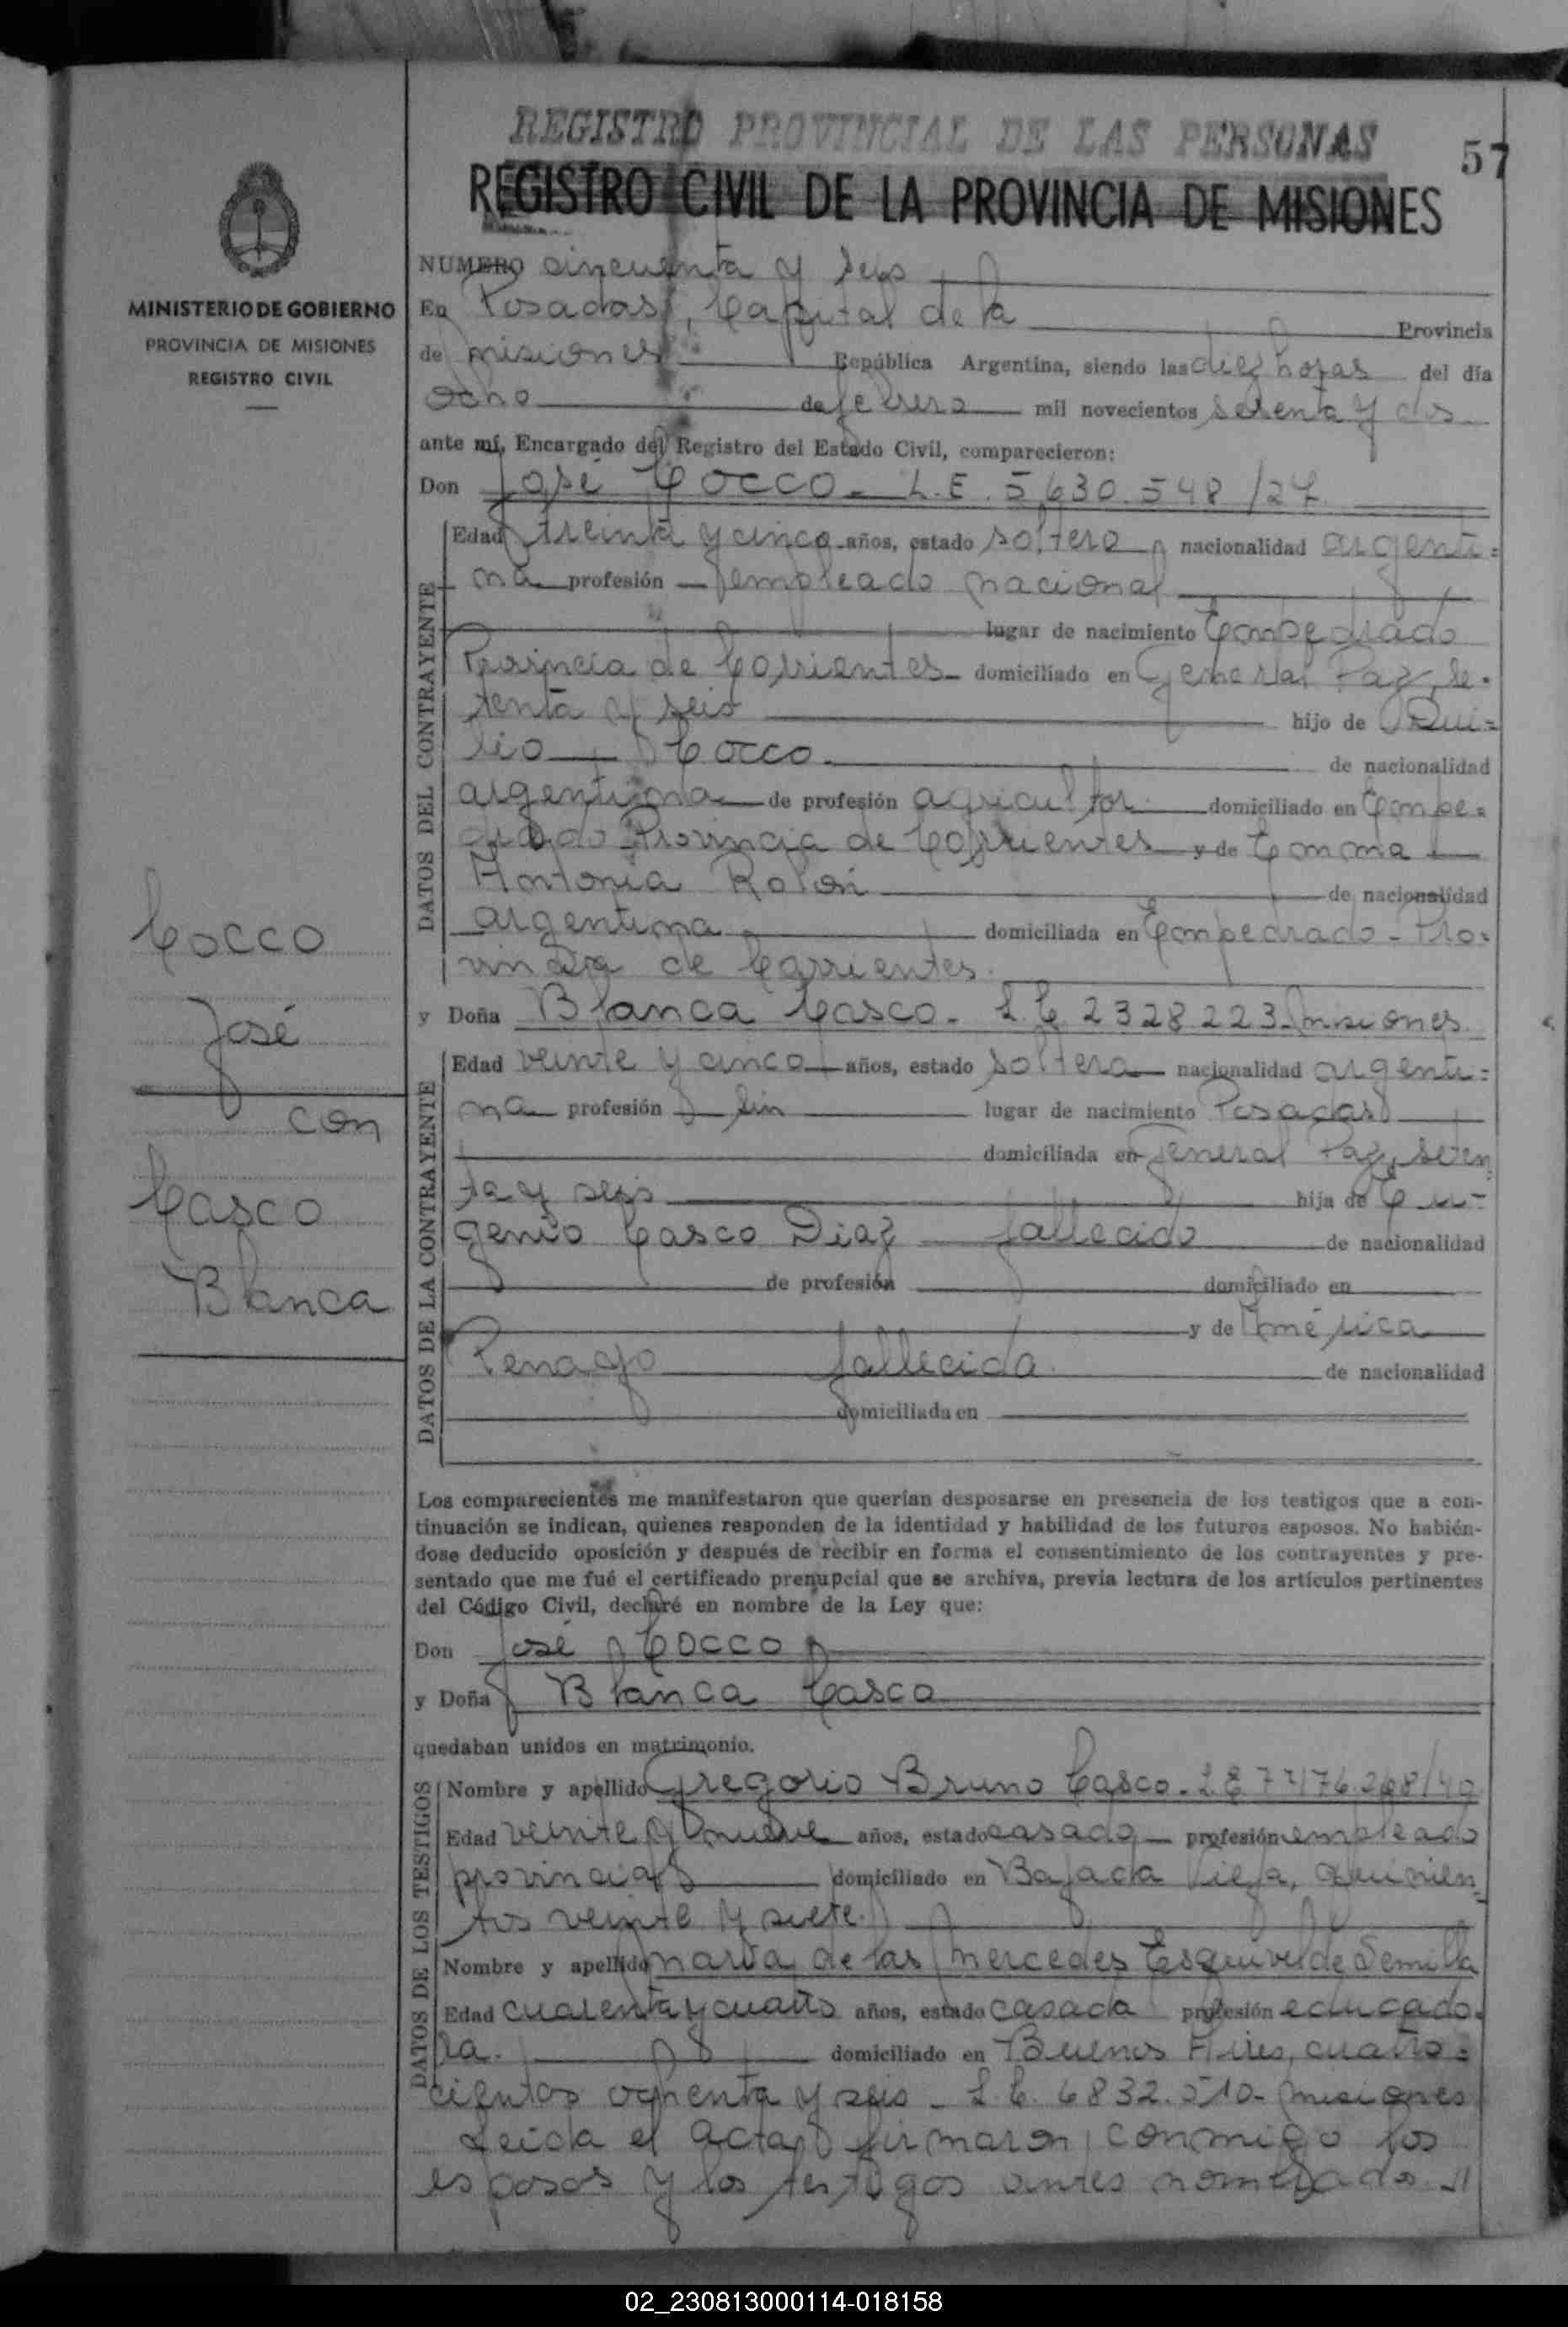 REGISTRO PROVINCIAL DE LAS PERSONAS
57
REGISTRO CIVIL DE LA PROVINCIA DE MISIONES
MINISTERIO DE GOBIERNO
PROVINCIA DE MISIONES
REGISTRO CIVIL
Cocco
José
con
Casco
Blanca
NUMERO cincuenta y seis
En Posadas, Capital de la Provincia
de misiones República Argentina, siendo las diez horas del día
Ocho de febrero mil novecientos setenta y dos
ante mí, Encargado del Registro del Estado Civil, comparecieron:
Don José Cocco - L.E. 5.630.548/27
DATOS DEL CONTRAYENTE
Edad treinta y cinco años, estado soltero nacionalidad argenti=
na profesión empleado nacional
lugar de nacimiento Empedrado
Provincia de Corrientes - domiciliado en General Paz, se-
tenta y seis hijo de
Cocco de nacionalidad
argentina de profesión agricultor domiciliado en Empe=
drado Provincia de Corrientes y de Emma
Antonia Rolón de nacionalidad
argentina domiciliada en Empedrado - Pro=
vincia de Corrientes.
y Doña Blanca Casco - L.C. 2328223 - misiones
DATOS DE LA CONTRAYENTE
Edad veinte y cinco años, estado soltera nacionalidad argenti=
na profesión sin lugar de nacimiento Posadas
domiciliada en General Paz, seten
ta y seis hija de Eu=
genio Casco Diaz fallecido de nacionalidad
de profesión domiciliado en
y de América
Penayo fallecida. de nacionalidad
domiciliada en
Los comparecientes me manifestaron que querían desposarse en presencia de los testigos que a con-
tinuación se indican, quienes responden de la identidad y habilidad de los futuros esposos. No habién-
dose deducido oposición y después de recibir en forma el consentimiento de los contrayentes y pre-
sentado que me fué el certificado prenupcial que se archiva, previa lectura de los artículos pertinentes
del Código Civil, declaré en nombre de la Ley que:
Don José Cocco
y Doña Blanca Casco
quedaban unidos en matrimonio.
DATOS DE LOS TESTIGOS
Nombre y apellido Gregorio Bruno Casco - L.E.
Edad veinte y nueve años, estado casado profesión empleado
provincial domiciliado en Bajada Vieja, quinien=
tos veinte y siete.
Nombre y apellido maria de las mercedes Esquivel de Semilla
Edad cuarenta y cuatro años, estado casada profesión educado=
ra. domiciliado en Buenos Aires, cuatro=
cientos ochenta y seis - L.C. 6832.510 - misiones
Leida el acta, firmaron conmigo los
esposos y los testigos antes nombrados.
02_230813000114-018158